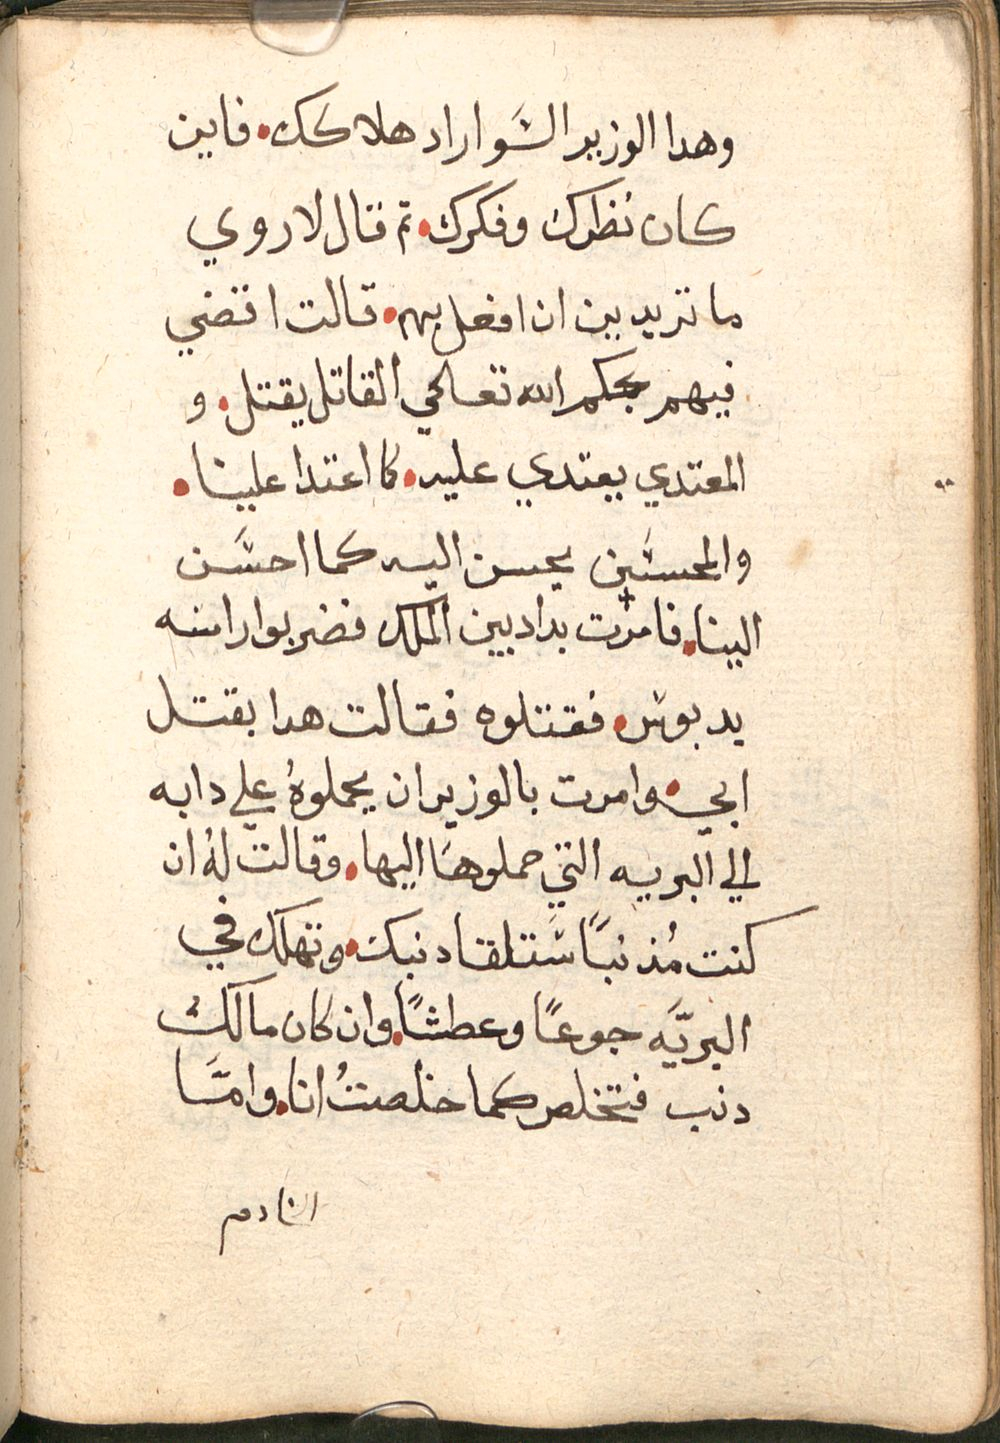 وهدا الوزير السَّو اراد هلاكك. فاين
كان نُظرك وفكرك. تم قال لاروي
ما تريدين ان افعل بهم. قالت اقضي
فيهم بحكم الله تعالي القاتل يقتل. و
المعتدي يعتدي عليه. كما اعتدا علينا.
والمحسنين يحسن اليه كما احسَن
الينا. فامرت بدادبين الملك فضربوا راسه
بدبوس. فقتلوه فقالت هدا بقتل
ابي. وامرت بالوزير ان يحملوهُ علي دابه
الي البريه التي حملوهَا اليها. وقالت لهُ ان
كنت مُذنبًا سَتلقا دنبك. وتهلك في
البريَّه جوعًا وعطشًا. وان كان مالك
دنب فتخلص كما خلصتُ انا. وامَّا
الخادم